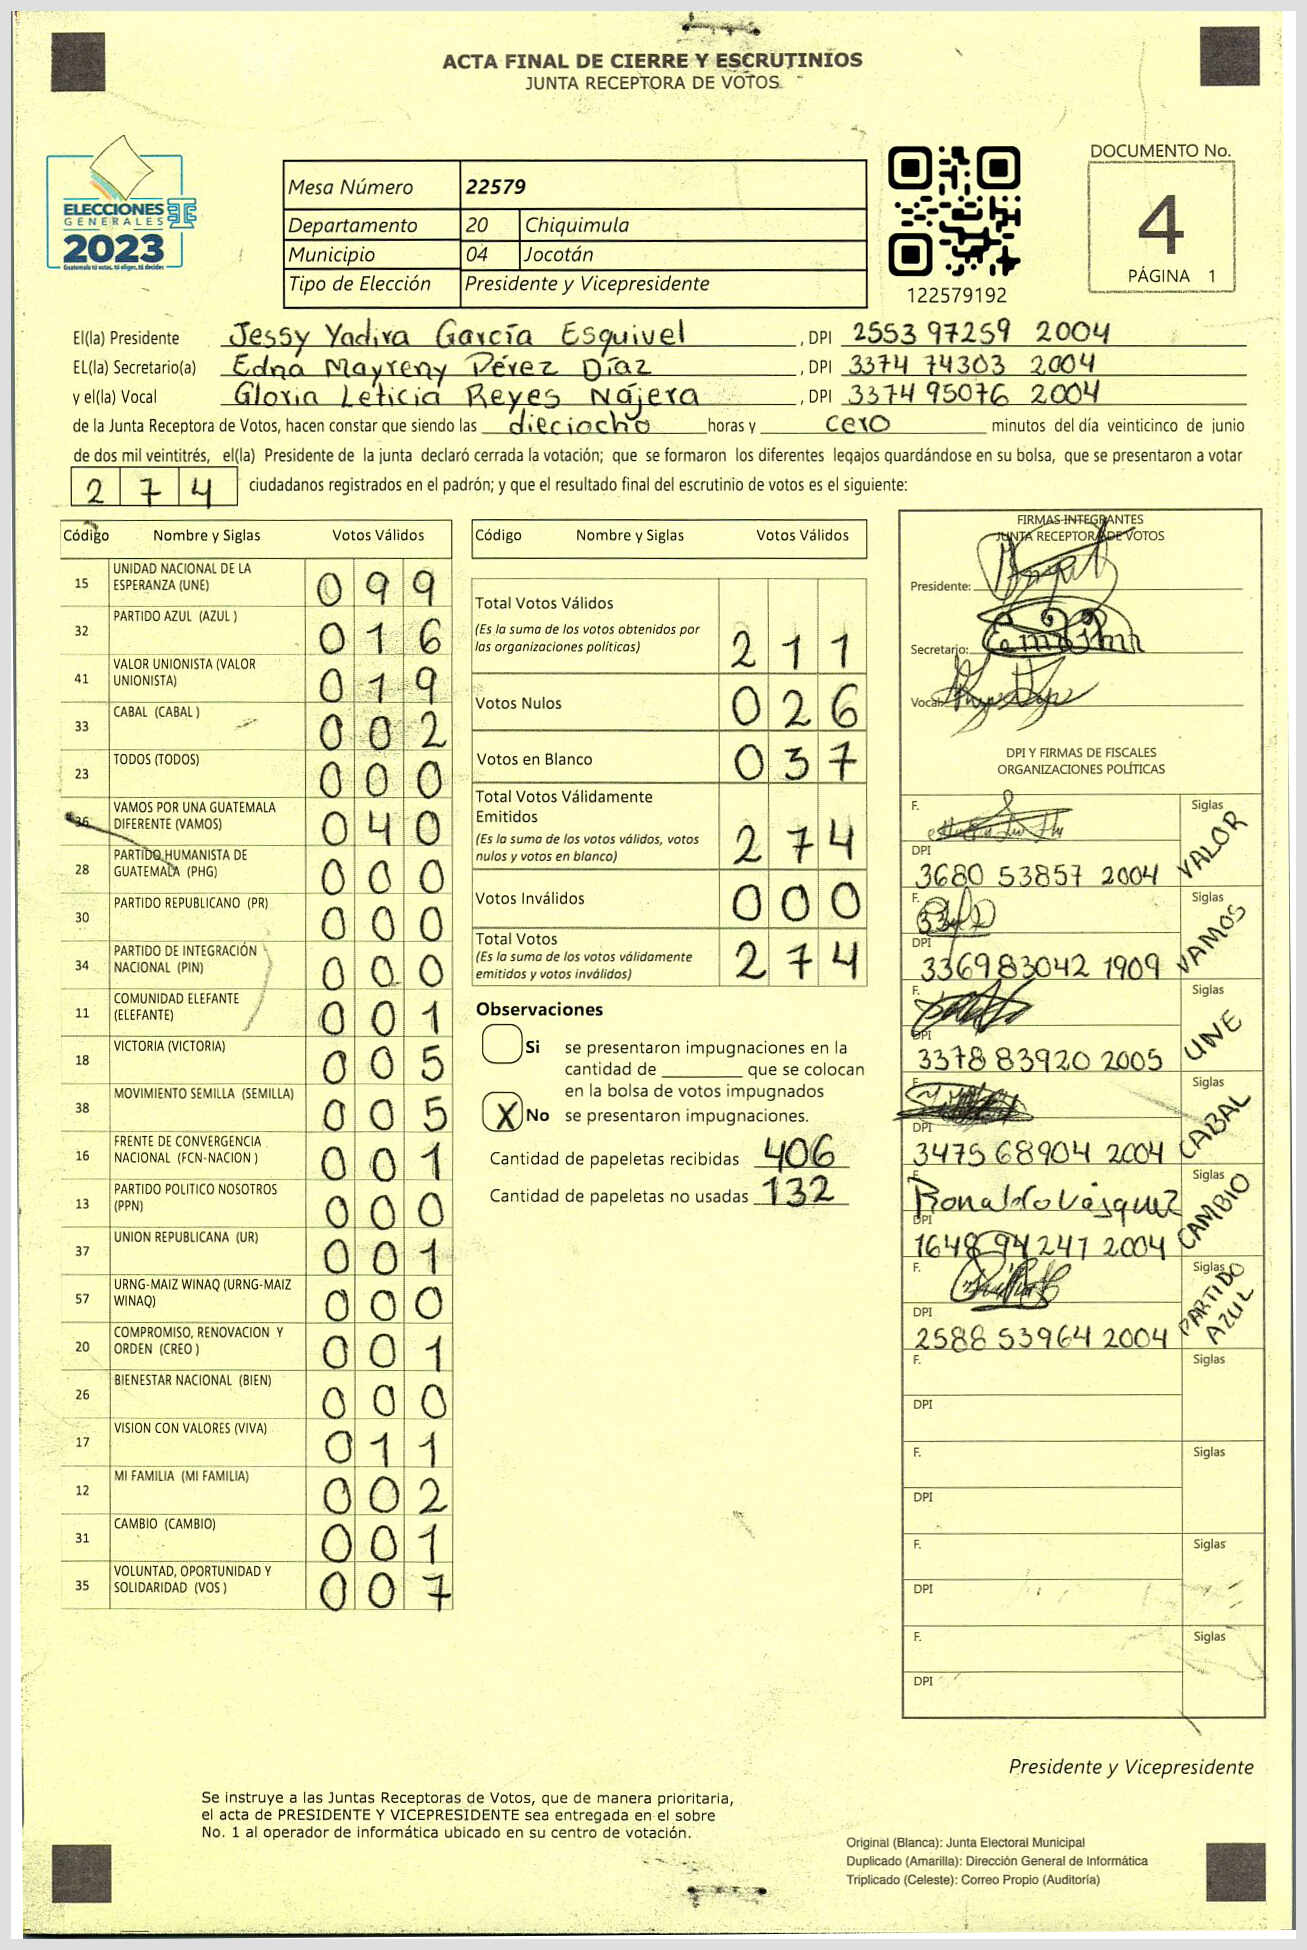 ACTA FINAL DE CIERRE Y ESCRUTINIOS
JUNTA RECEPTORA DE VOTOS
ELECCIONES
GENERALES
2023
Guatemala tú votas, tú eliges, tú decides
Mesa Número 22579
Departamento 20 Chiquimula
Municipio 04 Jocotán
Tipo de Elección Presidente y Vicepresidente
122579192
DOCUMENTO No.
4
PÁGINA 1
El(la) Presidente Jessy Yadira García Esquivel, DPI 2553 97259 2004
EL(la) Secretario(a) Edna Mayreny Pérez Díaz, DPI 3374 74303 2004
y el(la) Vocal Gloria Leticia Reyes Nájera, DPI 3374 95076 2004
de la Junta Receptora de Votos, hacen constar que siendo las dieciocho horas y cero minutos del día veinticinco de junio
de dos mil veintitrés, el(la) Presidente de la junta declaró cerrada la votación; que se formaron los diferentes legajos guardándose en su bolsa, que se presentaron a votar
274 ciudadanos registrados en el padrón; y que el resultado final del escrutinio de votos es el siguiente:
Código Nombre y Siglas Votos Válidos
15 UNIDAD NACIONAL DE LA ESPERANZA (UNE) 099
32 PARTIDO AZUL (AZUL ) 016
41 VALOR UNIONISTA (VALOR UNIONISTA) 019
33 CABAL (CABAL ) 002
23 TODOS (TODOS) 000
36 VAMOS POR UNA GUATEMALA DIFERENTE (VAMOS) 040
28 PARTIDO HUMANISTA DE GUATEMALA (PHG) 000
30 PARTIDO REPUBLICANO (PR) 000
34 PARTIDO DE INTEGRACIÓN NACIONAL (PIN) 000
11 COMUNIDAD ELEFANTE (ELEFANTE) 001
18 VICTORIA (VICTORIA) 005
38 MOVIMIENTO SEMILLA (SEMILLA) 005
16 FRENTE DE CONVERGENCIA NACIONAL (FCN-NACION ) 001
13 PARTIDO POLITICO NOSOTROS (PPN) 000
37 UNION REPUBLICANA (UR) 001
57 URNG-MAIZ WINAQ (URNG-MAIZ WINAQ) 000
20 COMPROMISO, RENOVACION Y ORDEN (CREO ) 001
26 BIENESTAR NACIONAL (BIEN) 000
17 VISION CON VALORES (VIVA) 011
12 MI FAMILIA (MI FAMILIA) 002
31 CAMBIO (CAMBIO) 001
35 VOLUNTAD, OPORTUNIDAD Y SOLIDARIDAD (VOS ) 007
Código Nombre y Siglas Votos Válidos
Total Votos Válidos
(Es la suma de los votos obtenidos por
las organizaciones políticas) 211
Votos Nulos 026
Votos en Blanco 037
Total Votos Válidamente
Emitidos
(Es la suma de los votos válidos, votos
nulos y votos en blanco) 274
Votos Inválidos 000
Total Votos
(Es la suma de los votos válidamente
emitidos y votos inválidos) 274
Observaciones
Si se presentaron impugnaciones en la
cantidad de ________ que se colocan
en la bolsa de votos impugnados
X No se presentaron impugnaciones.
Cantidad de papeletas recibidas 406
Cantidad de papeletas no usadas 132
FIRMAS INTEGRANTES
JUNTA RECEPTORA DE VOTOS
Presidente:
Secretario:
Vocal:
DPI Y FIRMAS DE FISCALES
ORGANIZACIONES POLÍTICAS
F. Siglas VALOR
DPI 3680 53857 2004
F. Siglas VAMOS
DPI 3369 83042 1909
F. Siglas UNE
DPI 3378 83920 2005
F. Siglas CABAL
DPI 3475 68904 2004
F. Ronaldo Vásquez Siglas CAMBIO
DPI 1648 94247 2004
F. Siglas PARTIDO AZUL
DPI 2588 53964 2004
F. Siglas
DPI
F. Siglas
DPI
F. Siglas
DPI
F. Siglas
DPI
Presidente y Vicepresidente
Se instruye a las Juntas Receptoras de Votos, que de manera prioritaria,
el acta de PRESIDENTE Y VICEPRESIDENTE sea entregada en el sobre
No. 1 al operador de informática ubicado en su centro de votación.
Original (Blanca): Junta Electoral Municipal
Duplicado (Amarilla): Dirección General de Informática
Triplicado (Celeste): Correo Propio (Auditoría)